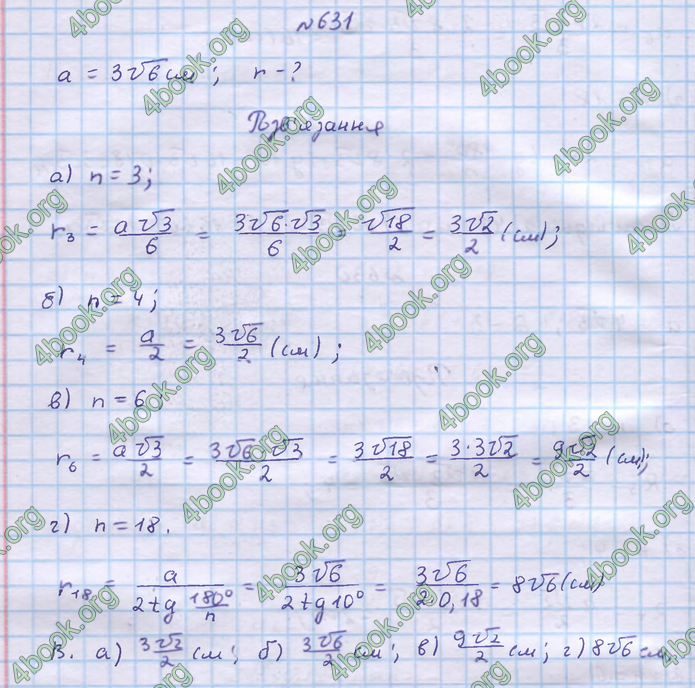 №631
a = 3√6 см ; r - ?
Розв'язання
а) n = 3;
r₃ = a√3/6 = 3√6·√3/6 = √18/2 = 3√2/2 (см);
б) n = 4;
r₄ = a/2 = 3√6/2 (см);
в) n = 6;
r₆ = a√3/2 = 3√6·√3/2 = 3√18/2 = 3·3√2/2 = 9√2/2 (см);
г) n = 18.
r₁₈ = a/(2tg 180°/n) = 3√6/(2tg10°) = 3√6/(2·0,18) = 8√6 (см)
В. а) 3√2/2 см; б) 3√6/2 см; в) 9√2/2 см; г) 8√6 см
4book.org